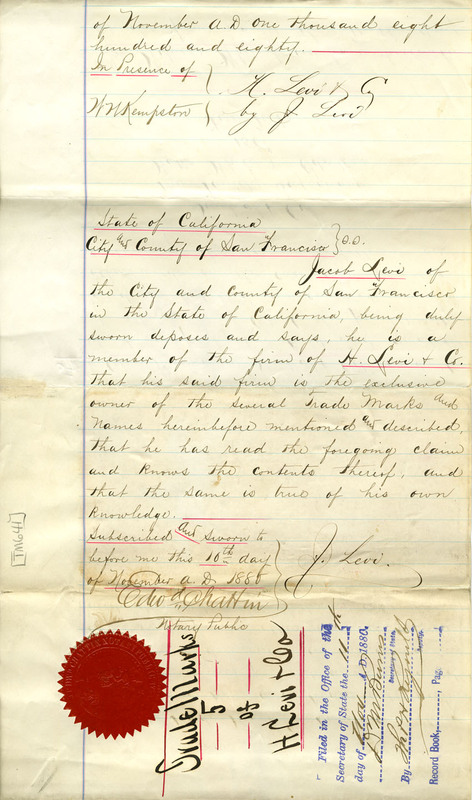 of November A.D. One thousand eight
hundred and eighty.
In Presence of
W N Kempston
H. Levi & Co
by J. Levi
State of California
City and County of San Francisco } S.S.
Jacob Levi of
the City and County of San Francisco
in the State of California, being duly
sworn deposes and says, he is a
member of the firm of H. Levi & Co.
that his said firm is the exclusive
owner of the several Trade Marks and
Names hereinbefore mentioned and described,
that he has read the foregoing claim
and knows the contents thereof, and
that the same is true of his own
knowledge.
Subscribed and Sworn to
before me this 10th day
of November A.D. 1880
J. Levi.
Edwd Chattin
Notary Public
[TM641]
Trade Marks
5
of
H Levi & Co
Filed in the Office of the
Secretary of State the 11th
day of Nov A.D. 1880.
Secretary of State
By Deputy
Record Book, Pag